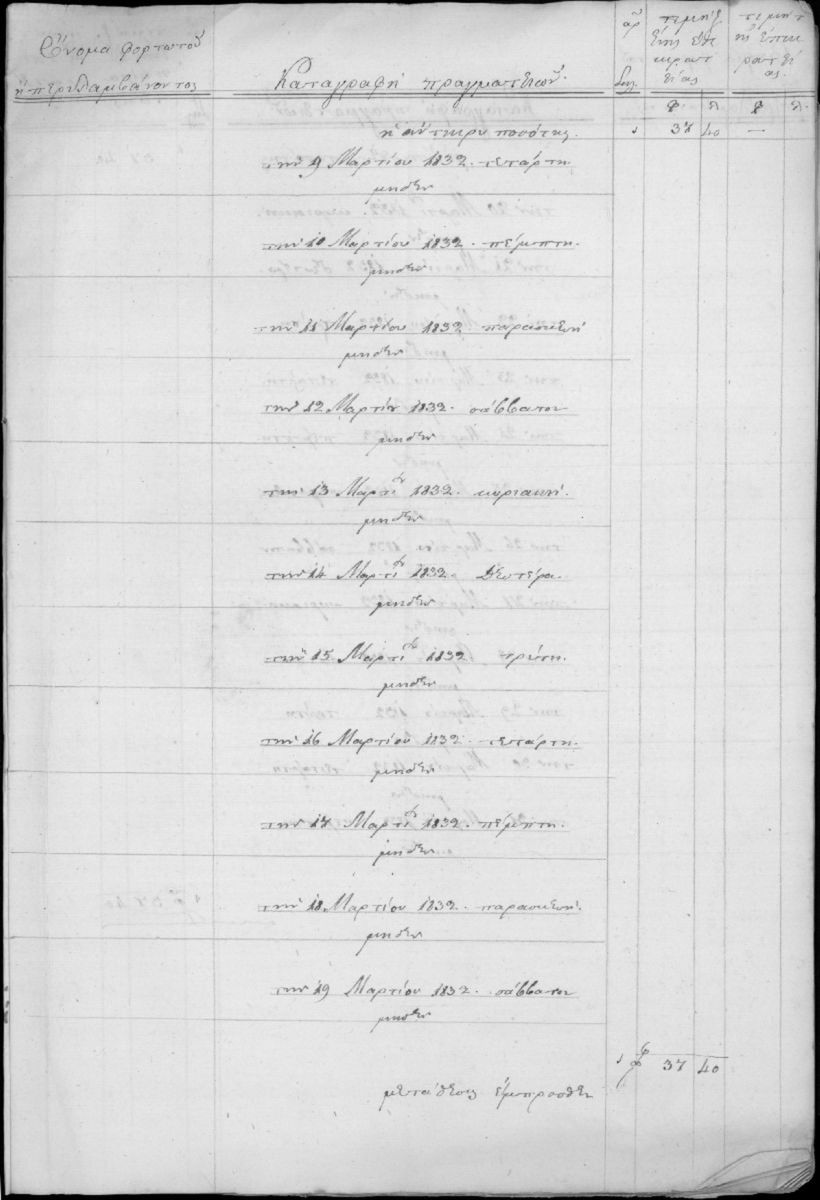 Ὄνομα φορτωτοῦ
ἢ περιλαμβάνοντος
Καταγραφὴ πραγματειῶν.
ἀρ
τιμὴ τ
ἡ ἀντικρυ ποσότης. 37 40 —
την 9 Μαρτίου 1832. τετάρτη
μηδεν
την 10 Μαρτίου 1832. πέμπτη.
μηδεν
την 11 Μαρτίου 1832. παρασκευή
μηδεν
την 12 Μαρτίου 1832. σάββατον
μηδεν
την 13 Μαρτίου 1832. κυριακή.
μηδεν
την 14 Μαρτίου 1832. Δευτέρα.
μηδεν
την 15 Μαρτίου 1832. τρίτη.
μηδεν
την 16 Μαρτίου 1832. τετάρτη.
μηδεν
την 17 Μαρτίου 1832. πέμπτη.
μηδεν
την 18 Μαρτίου 1832. παρασκευή.
μηδεν
την 19 Μαρτίου 1832. σάββατον
μηδεν
37 40
μετάθεσις ἔμπροσθεν